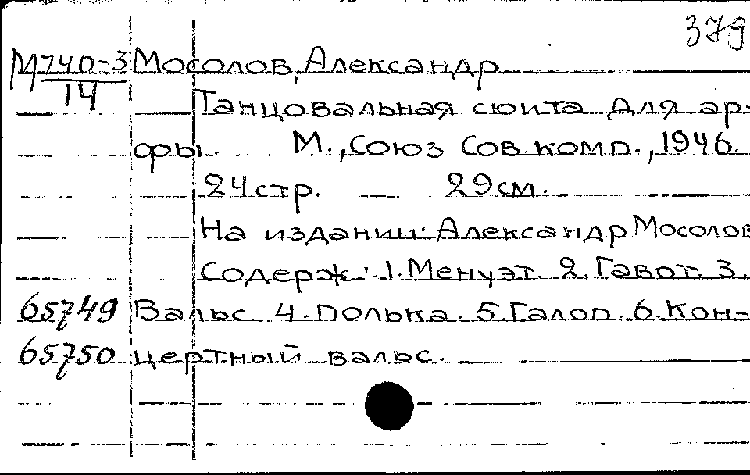 379
М740-3 Мосолов, Александр
14
Танцовальная сюита для ар-
фы. М., Союз Сов комп., 1946.
24стр. — 29см.
На издании: Александр Мосолов
Содерж: 1. Менуэт 2. Гавот. 3.
65749 Вальс 4. Полька. 5. Галоп. 6. Кон-
65750 цертный вальс.